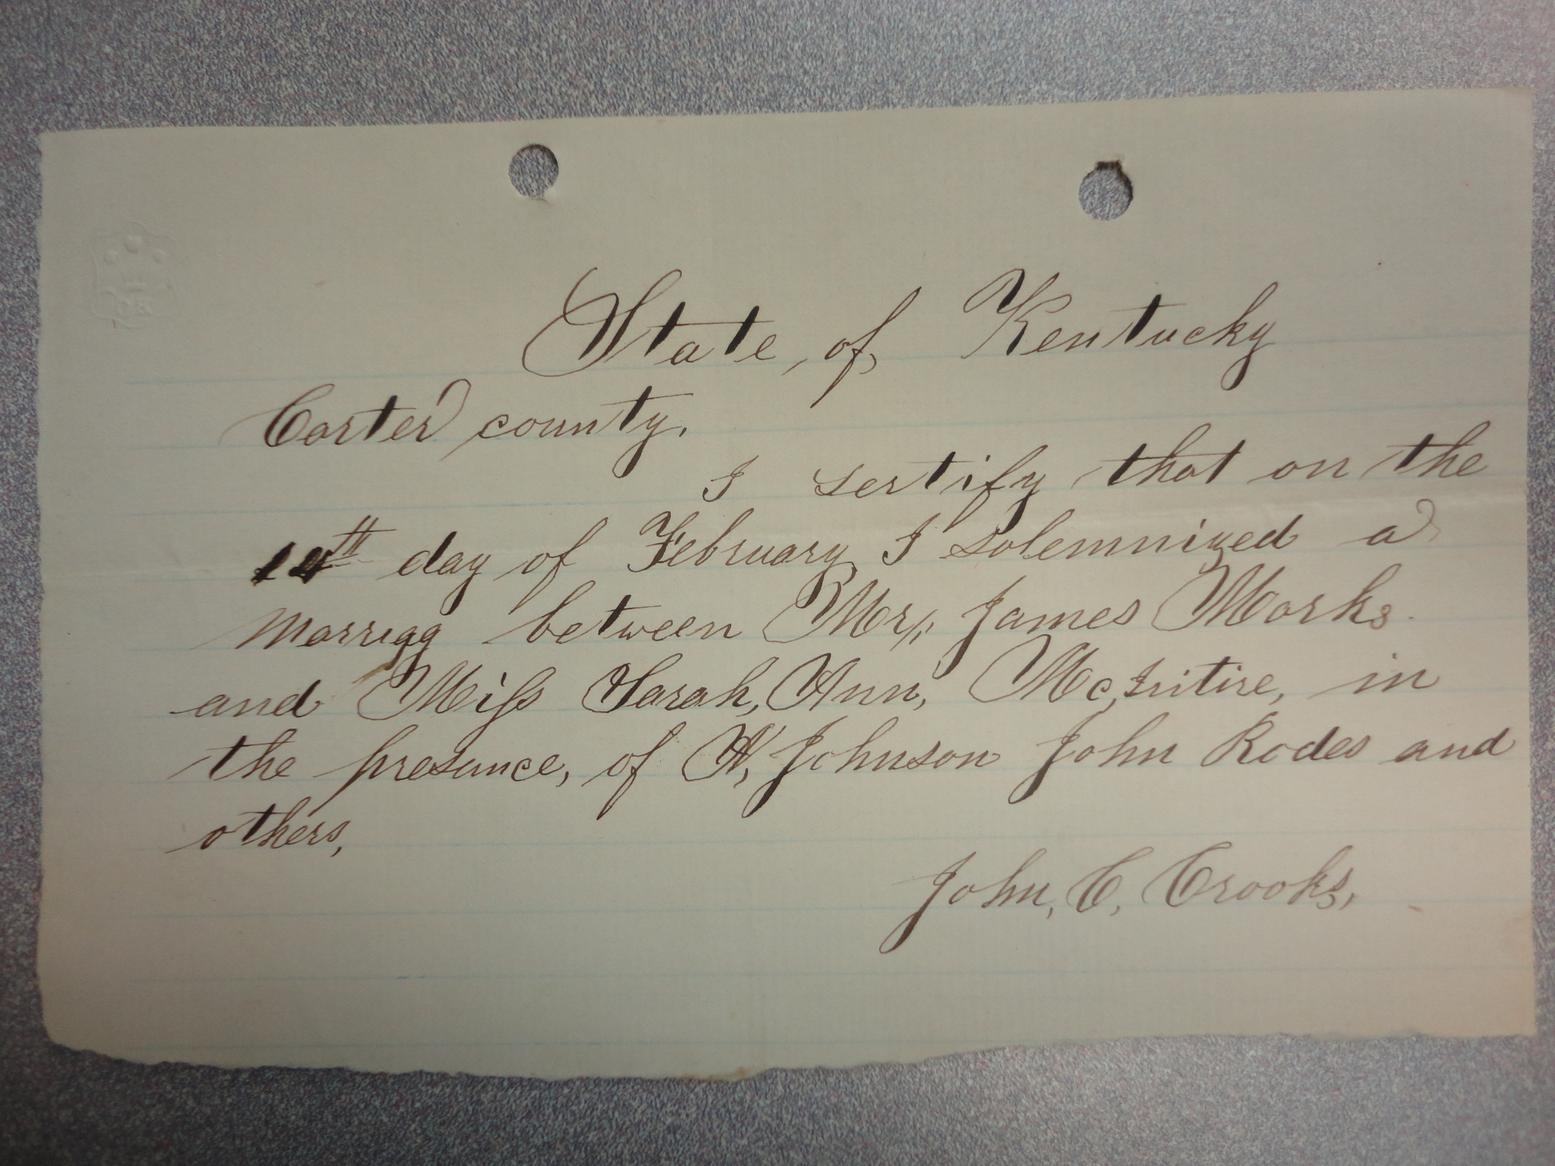 State, of, Kentucky
Carter county,
I sertify that on the
14th day of February I solemnized a
Marriagg between Mr, James Marks
and Miss Sarah, Ann, McIntire, in
the presance, of H, Johnson John Rodes and
others,
John, C, Crooks,